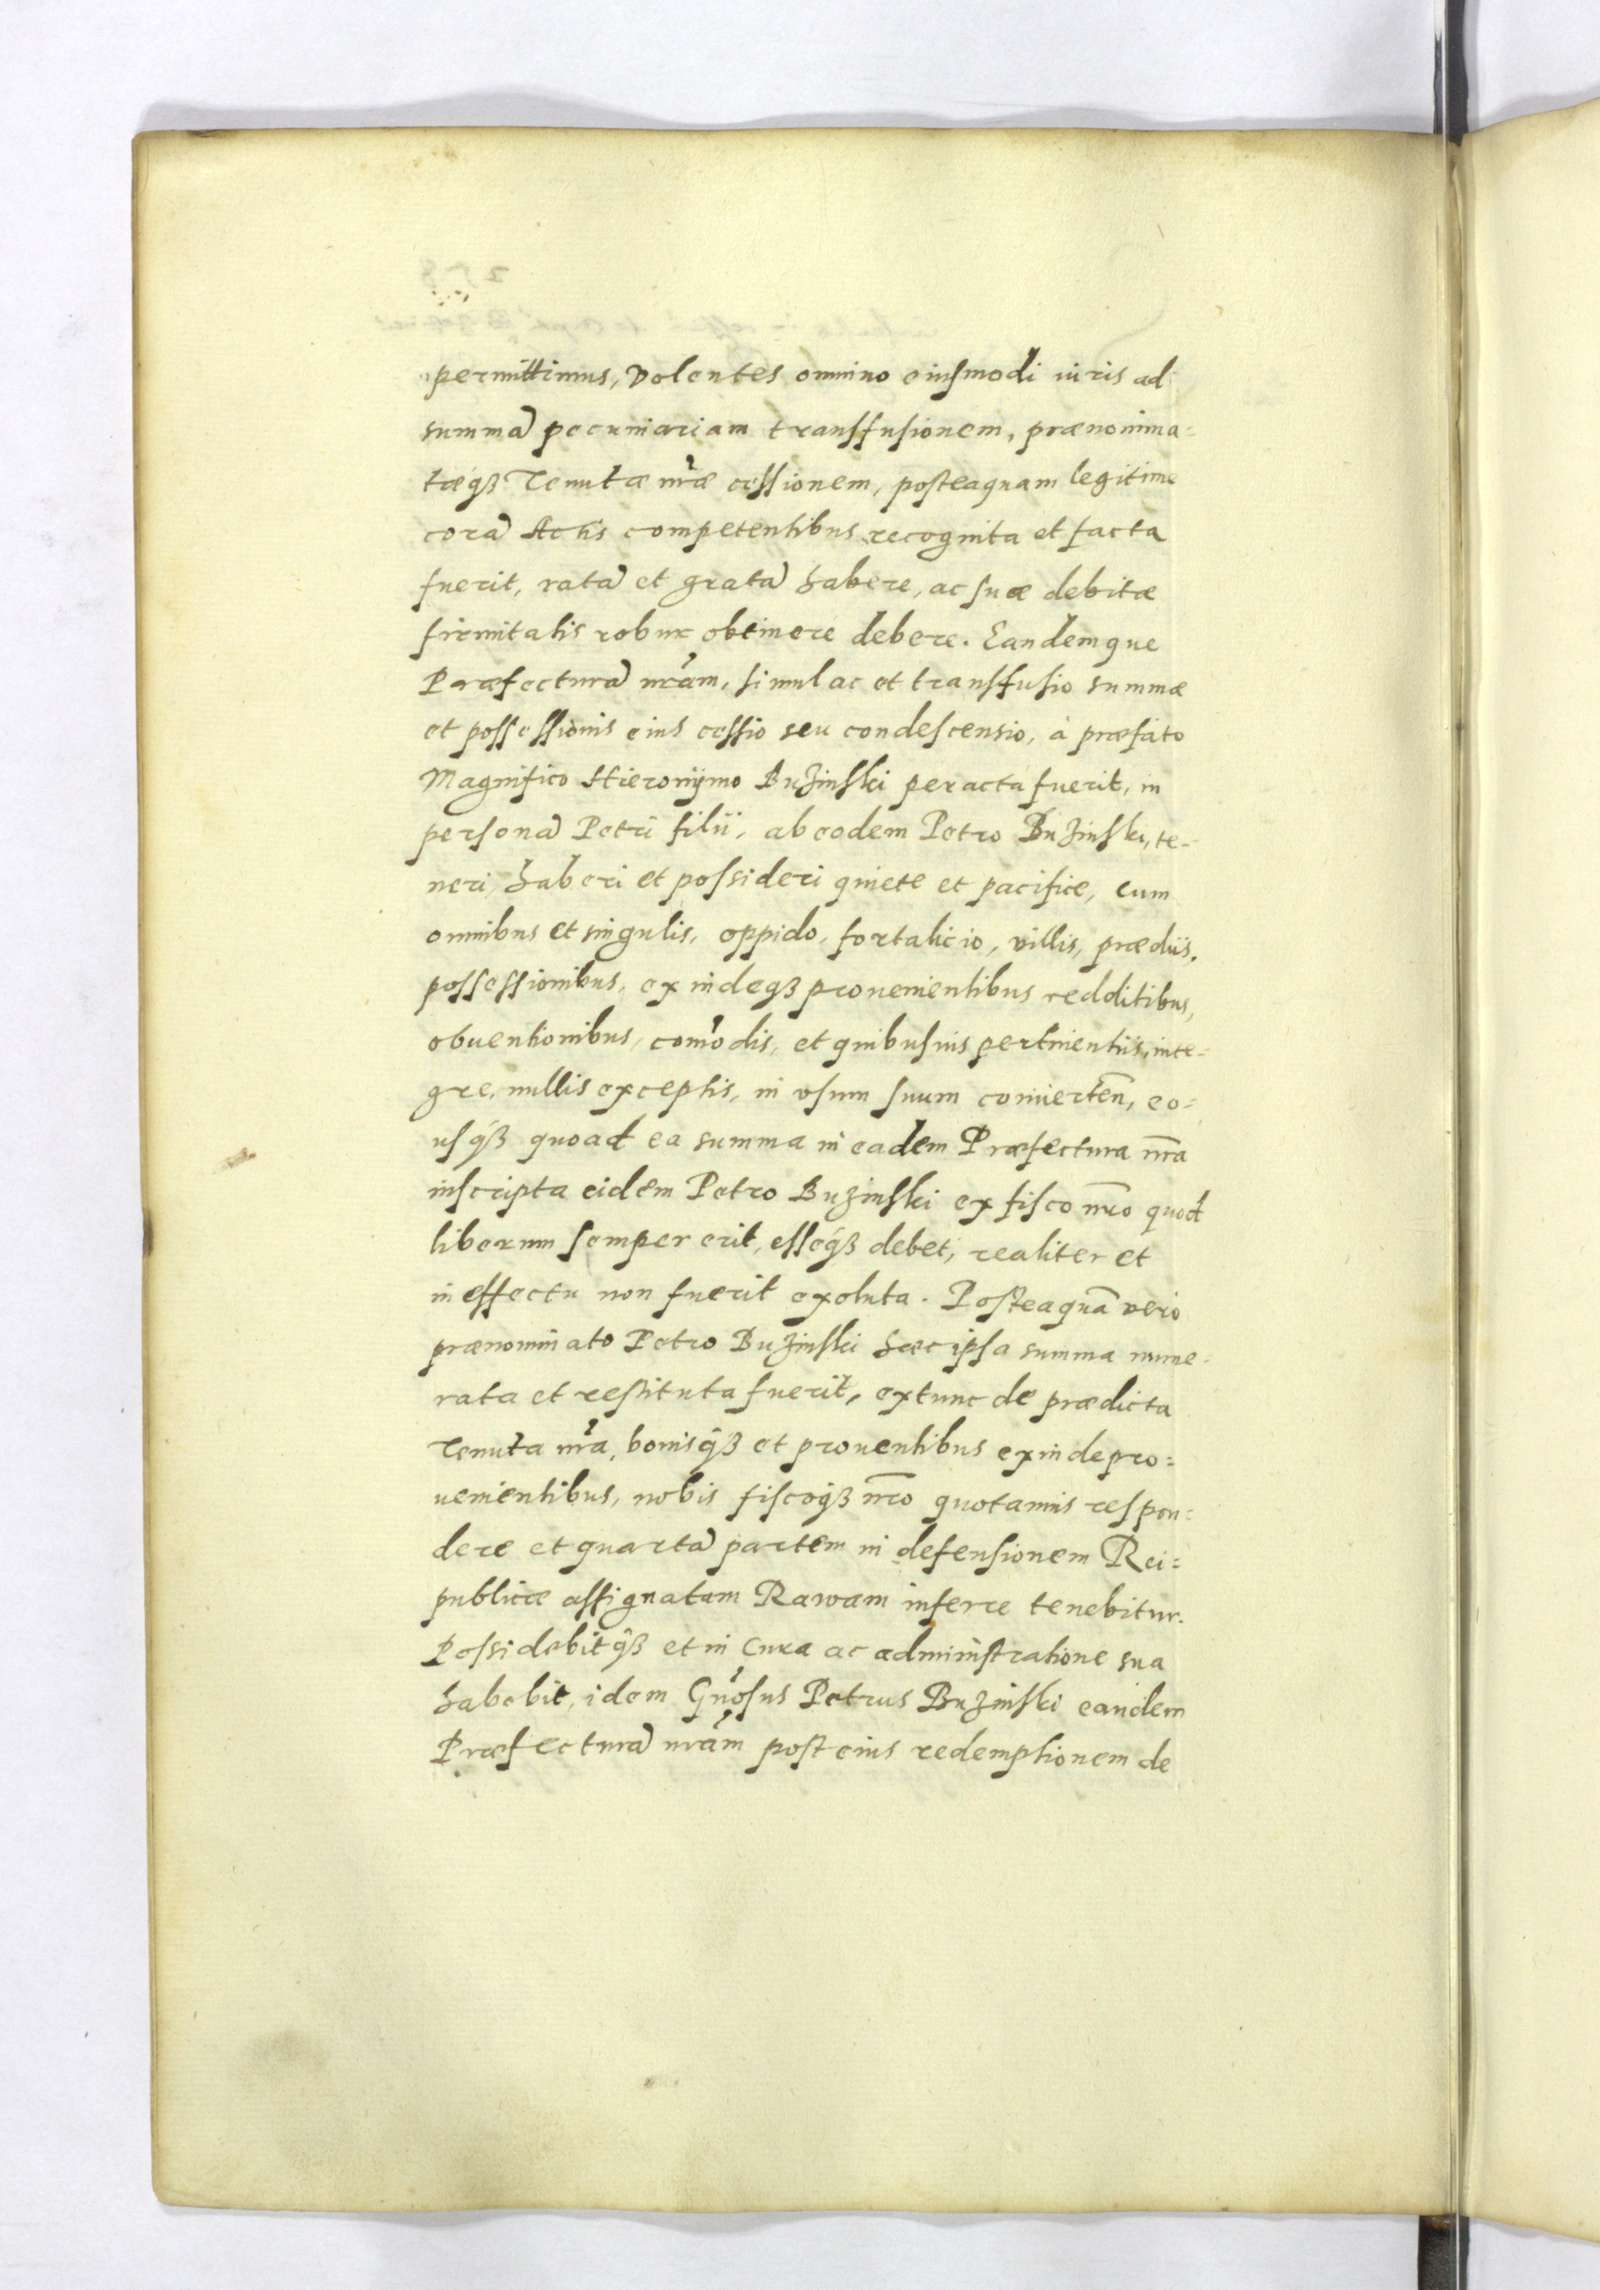 permittimus, Volentes omnino eiusmodi iuris ad
summã pecuniariam transfusionem, prænomina=
tæq3 Tenutæ nr̃æ cessionem, posteaquam legitime
corã Actis competentibus recognita et facta
fuerit, ratã et gratã habere, ac suæ debitæ
firmitatis robur obtinere debere. Eandemque
Præfecturã nrãm, simul ac et transfusio summæ
et possessionis eius cessio seu condescensio, à præfato
Magnifico Hieronÿmo Buzinski peracta fuerit, in
personã Petri filii, ab eodem Petro Buzinski, te-
neri, haberi et possideri quiete et pacifice, cum
omnibus et singulis, oppido, fortalicio, villis, prædiis,
possessionibus, exindeq3 prouenientibus redditibus,
obuentionibus, com̃odis, et quibusuis pertinentiis, inte=
gre, nullis exceptis, in vsum suum conuerteñ, eo=
usq3 quoad ea summa in eadem Præfectura nr̃a
inscripta eidem Petro Buzinski ex fisco nr̃o quod
liberum semper erit, esseq3 debet, realiter et
in effectu non fuerit exoluta. Posteaquã vero
prænominato Petro Buzinski hæc ipsa summa nume-
rata et restituta fuerit, extunc de prædicta
Tenuta nr̃a, bonisq3 et prouentibus exinde pro=
uenientibus, nobis fiscoq3 nr̃o quotannis respon=
dere et quartã partem in defensionem Rei=
publicæ assignatam Rawam inferre tenebitur.
Possidebitq3 et in Cura ac administratione sua
habebit, idem Gñosus Petrus Buzinski eandem
Præfecturã nrãm post eius redemptionem de